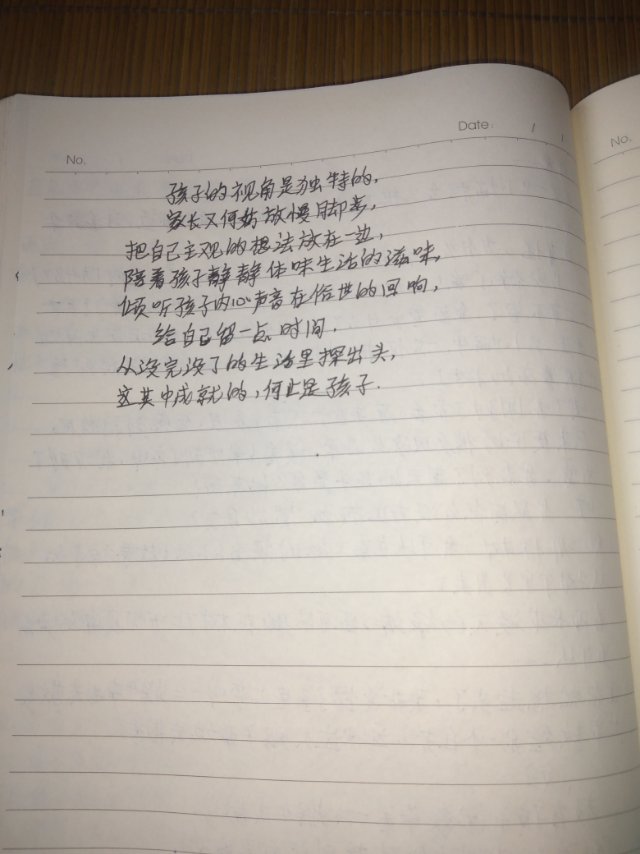 No.
Date: / /
No.
孩子的视角是独特的,
家长又何妨放慢脚步,
把自己主观的想法放在一边,
陪着孩子静静体味生活的滋味,
倾听孩子内心声音在俗世的回响,
给自己留一点时间,
从没完没了的生活里探出头,
这其中成就的,何止是孩子.